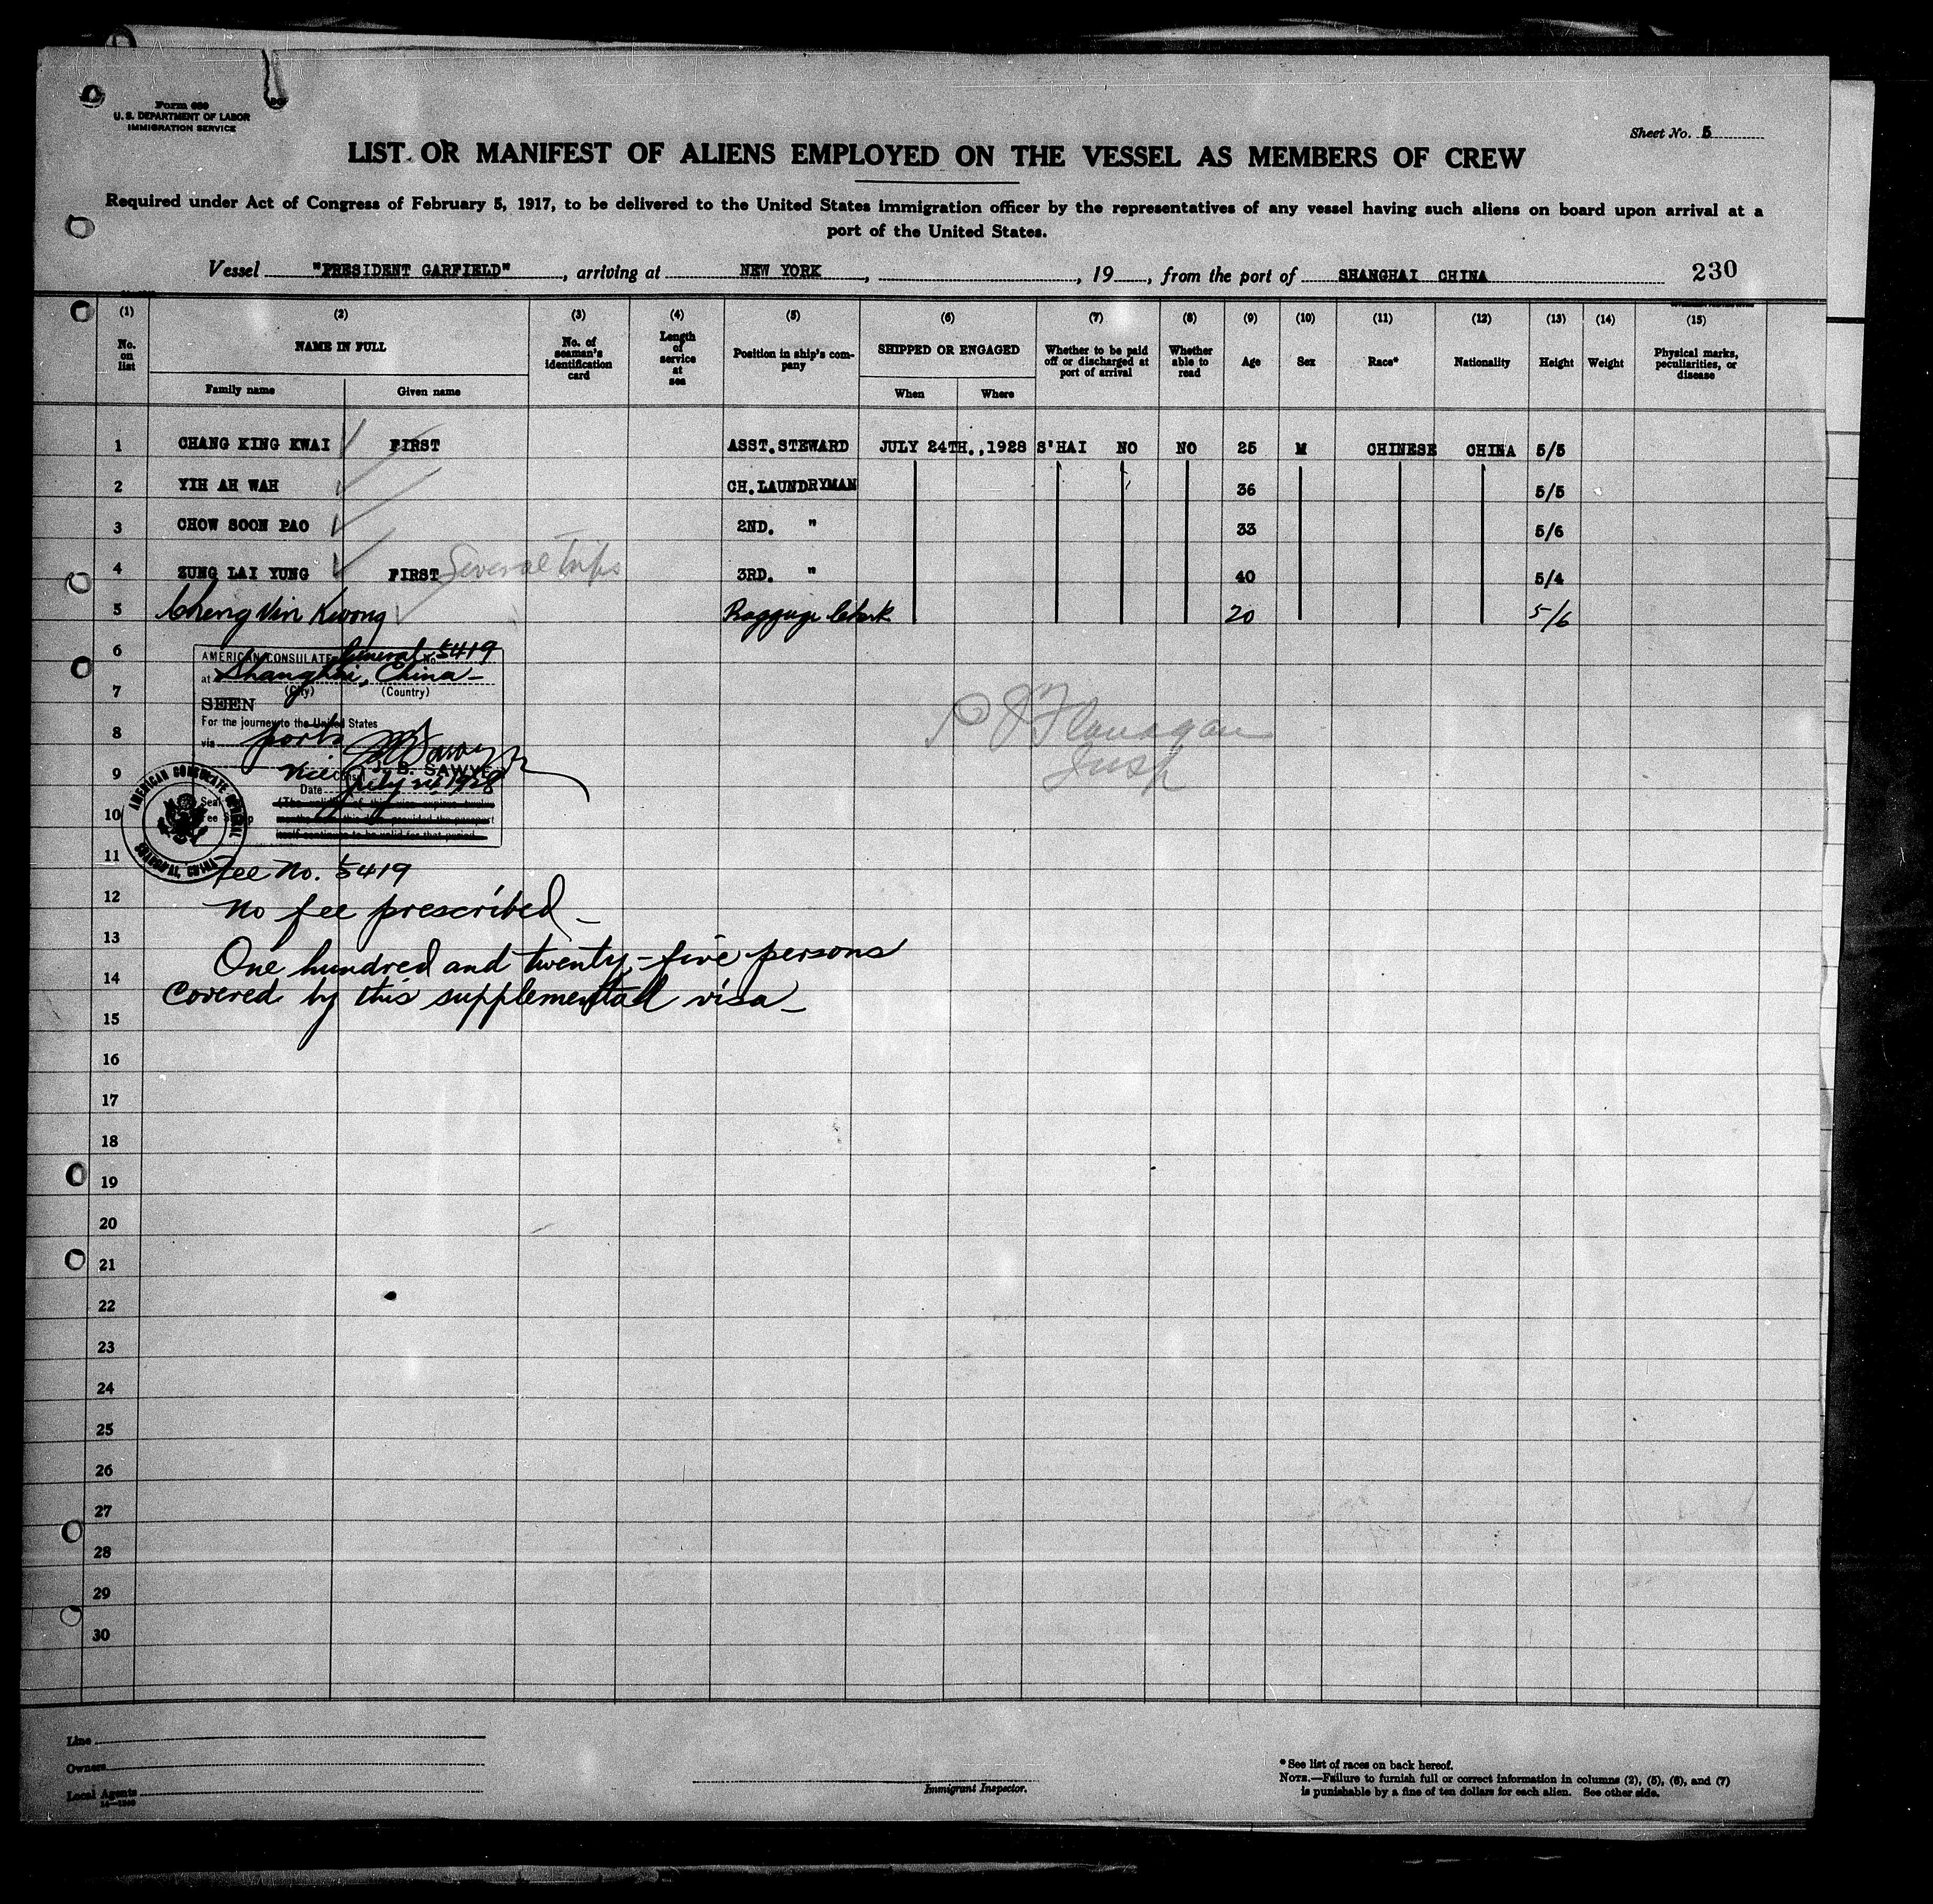 Form 680
U. S. DEPARTMENT OF LABOR
IMMIGRATION SERVICE
Sheet No. 5
LIST OR MANIFEST OF ALIENS EMPLOYED ON THE VESSEL AS MEMBERS OF CREW
Required under Act of Congress of February 5, 1917, to be delivered to the United States immigration officer by the representatives of any vessel having such aliens on board upon arrival at a
port of the United States.
Vessel "PRESIDENT GARFIELD", arriving at NEW YORK, , 19 , from the port of SHANGHAI CHINA 230
(1) (2) (3) (4) (5) (6) (7) (8) (9) (10) (11) (12) (13) (14) (15)
No. on list NAME IN FULL No. of seaman's identification card Length of service at sea Position in ship's company SHIPPED OR ENGAGED Whether to be paid off or discharged at port of arrival Whether able to read Age Sex Race* Nationality Height Weight Physical marks, peculiarities, or disease
Family name Given name When Where
1 CHANG KING KWAI FIRST ASST. STEWARD JULY 24TH., 1928 S'HAI NO NO 25 M CHINESE CHINA 5/5
2 YIH AH WAH CH. LAUNDRYMAN 36 5/5
3 CHOW SOON PAO 2ND. " 33 5/6
4 ZUNG LAI YUNG FIRST Several trips 3RD. " 40 5/4
5 Cheng Vin Kwong Baggage Clerk 20 5/6
6
AMERICAN CONSULATE General No. 5419
at Shanghai, China
(City) (Country)
7
SEEN
For the journey to the United States
8
via ports
P J Flanagan
Insp
9
Vice Consul J. B. SAWYER
Date July 24, 1928
Seal
Fee Stamp
10
AMERICAN CONSULATE GENERAL
SHANGHAI, CHINA
11
Fee No. 5419
12
No fee prescribed
13
One hundred and twenty-five persons
14
covered by this supplemental visa
15
16
17
18
19
20
21
22
23
24
25
26
27
28
29
30
Line
Owners
Local Agents
Immigrant Inspector.
*See list of races on back hereof.
NOTE.—Failure to furnish full or correct information in columns (2), (5), (6), and (7)
is punishable by a fine of ten dollars for each alien. See other side.